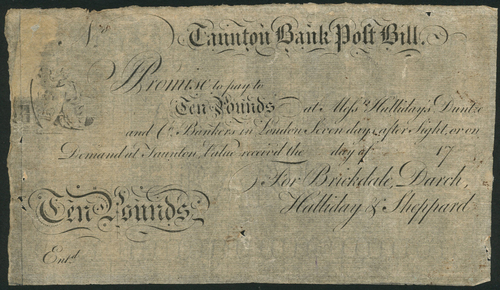 Taunton Bank Post Bill.
Promise to pay to
Ten Pounds at Messrs Hallidays Duntze
and Co. Bankers in London Seven days after Sight, or on
Demand at Taunton, Value received the day of 17
For Brickdale, Darch,
Halliday & Sheppard
Ten Pounds
Entd.